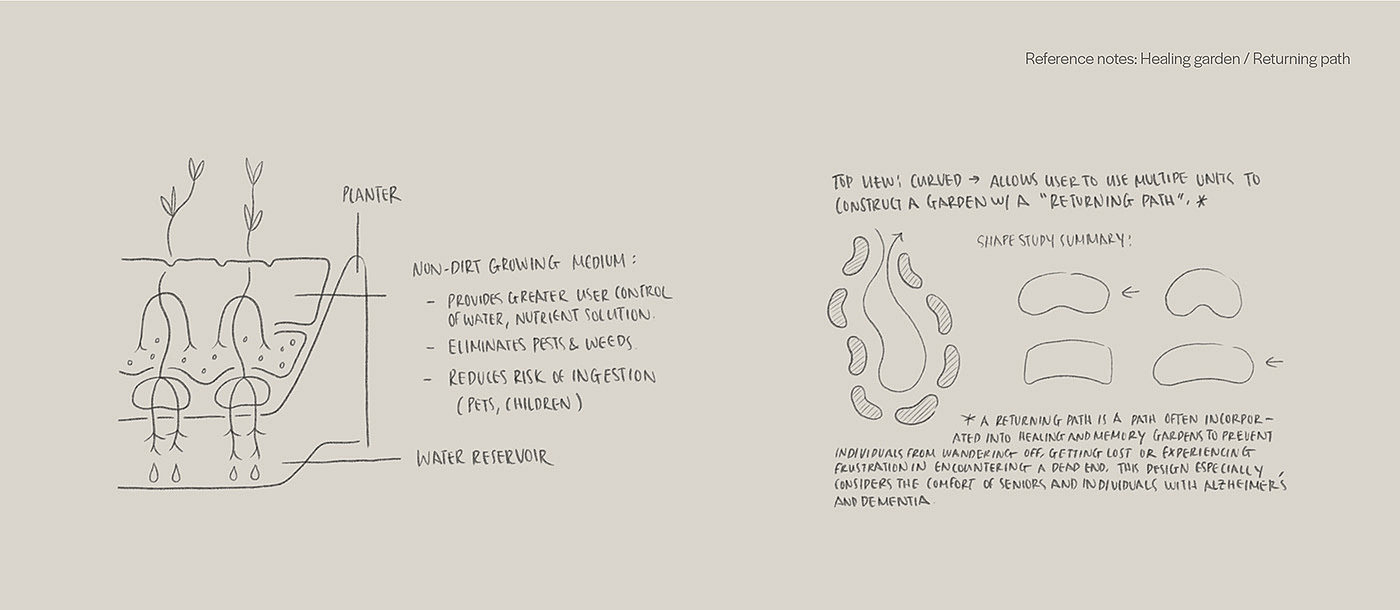 Reference notes: Healing garden / Returning path
PLANTER
NON-DIRT GROWING MEDIUM:
- PROVIDES GREATER USER CONTROL
OF WATER, NUTRIENT SOLUTION.
- ELIMINATES PESTS & WEEDS.
- REDUCES RISK OF INGESTION
(PETS, CHILDREN)
WATER RESERVOIR
TOP VIEW: CURVED → ALLOWS USER TO USE MULTIPE UNITS TO
CONSTRUCT A GARDEN W/ A "RETURNING PATH". *
SHAPE STUDY SUMMARY:
* A RETURNING PATH IS A PATH OFTEN INCORPOR-
ATED INTO HEALING AND MEMORY GARDENS TO PREVENT
INDIVIDUALS FROM WANDERING OFF, GETTING LOST OR EXPERIENCING
FRUSTRATION IN ENCOUNTERING A DEAD END. THIS DESIGN ESPECIALLY
CONSIDERS THE COMFORT OF SENIORS AND INDIVIDUALS WITH ALZHEIMER'S
AND DEMENTIA.